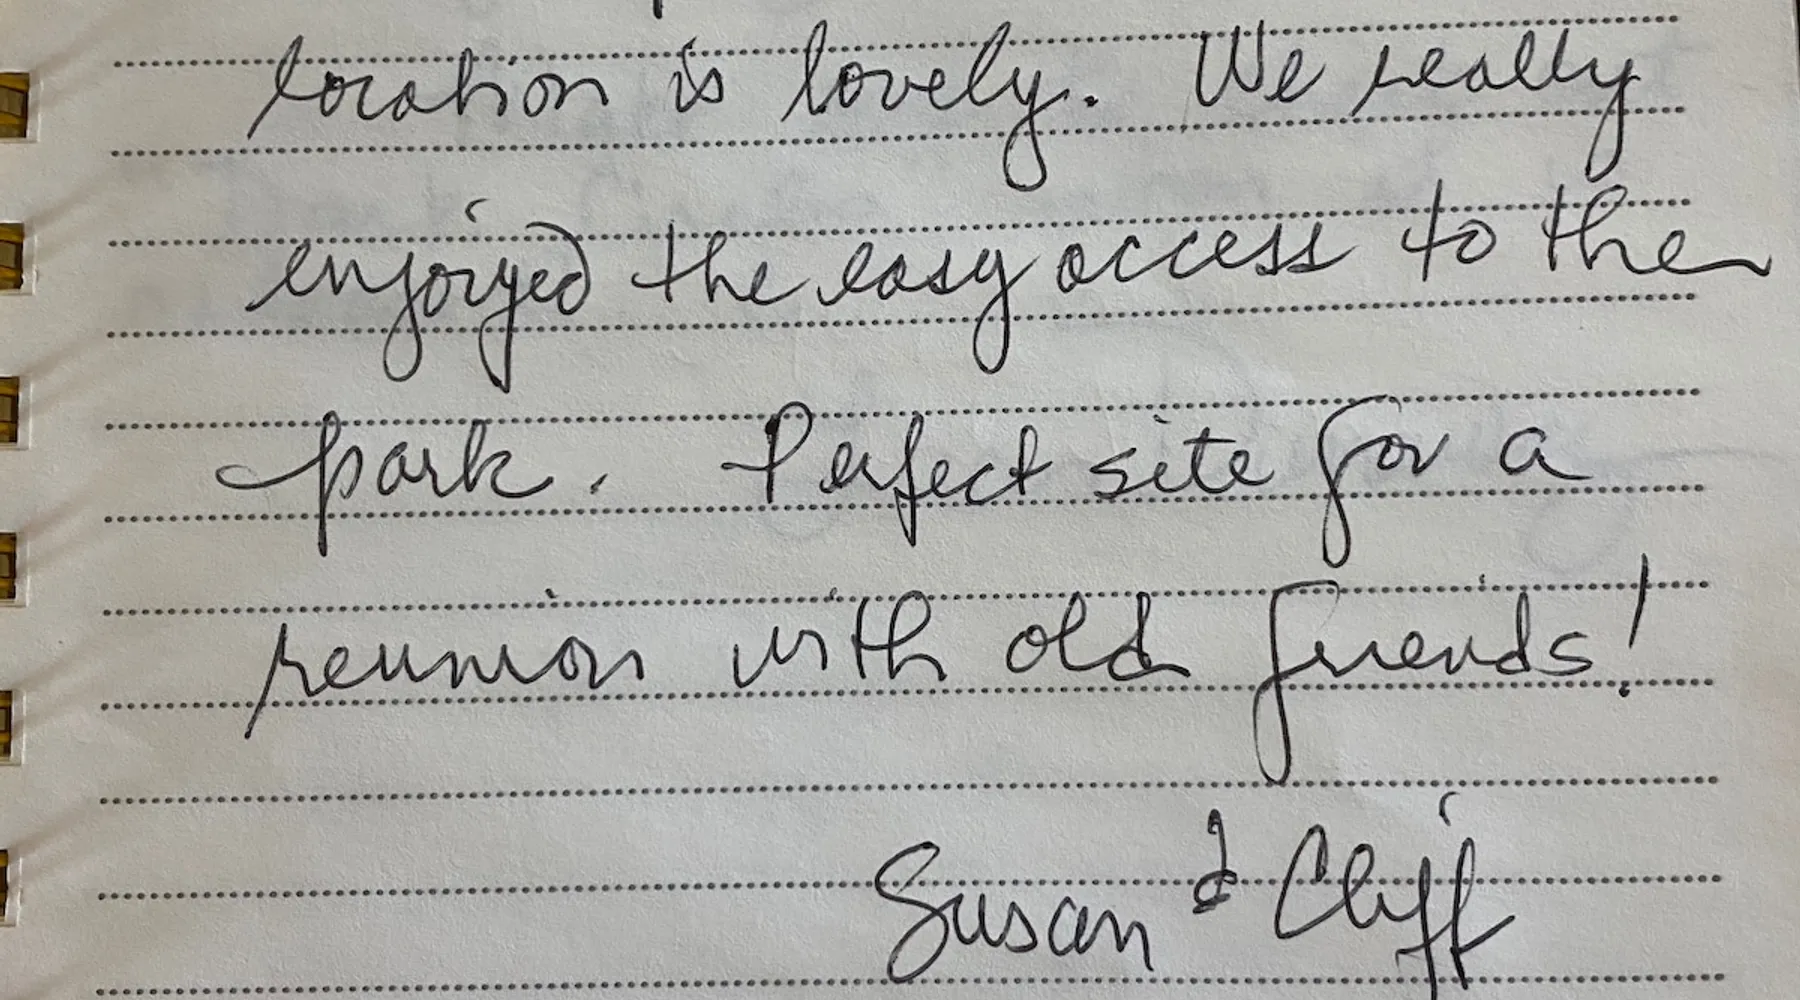 location is lovely. We really
enjoyed the easy access to the
park. Perfect site for a
reunion with old friends!
Susan & Cliff